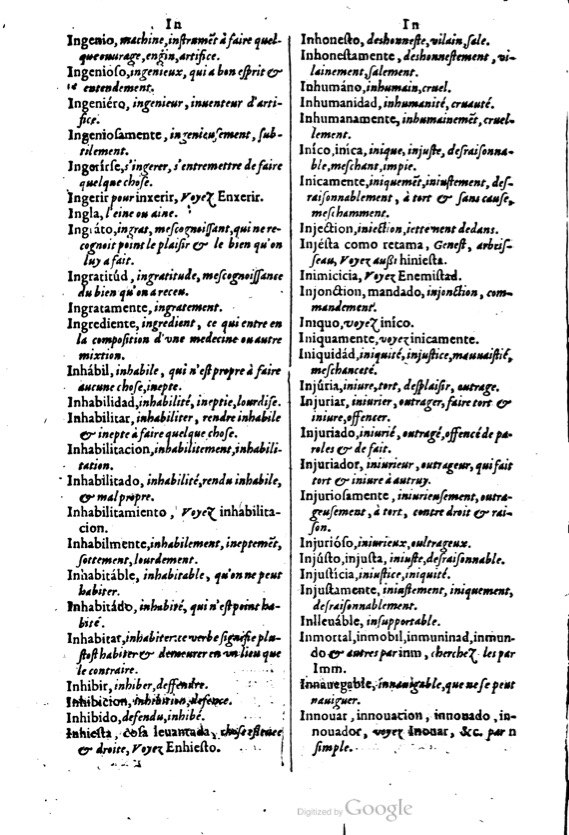 In
Ingenio, machine, instrumēt à faire quel-
que ouurage, engin, artifice.
Ingenioso, ingenieux, qui a bon esprit &
entendement.
Ingeniéro, ingenieur, inuenteur d'arti-
fice.
Ingeniosamente, ingenieusement, sub-
tilement.
Ingerírse, s'ingerer, s'entremettre de faire
quelque chose.
Ingerir pour inxerir, Voyez Enxerir.
Ingla, l'eine ou aine.
Ingráto, ingrat, mescognoissant, qui ne re-
cognoit point le plaisir & le bien qu'on
luy a fait.
Ingratitúd, ingratitude, mescognoissance
du bien qu'on a receu.
Ingratamente, ingratement.
Ingrediente, ingredient, ce qui entre en
la composition d'vne medecine ou autre
mixtion.
Inhábil, inhabile, qui n'est propre à faire
aucune chose, inepte.
Inhabilidad, inhabilité, ineptie, lourdise.
Inhabilitar, inhabiliter, rendre inhabile
& inepte à faire quelque chose.
Inhabilitacion, inhabilitement, inhabili-
tation.
Inhabilitado, inhabilité, rendu inhabile,
& mal propre.
Inhabilitamiento, Voyez inhabilita-
cion.
Inhabilmente, inhabilement, ineptemēt,
sottement, lourdement.
Inhabitáble, inhabitable, qu'on ne peut
habiter.
Inhabitádo, inhabité, qui n'est point ha-
bité.
Inhabitar, inhabiter: ce verbe signifie plu-
stost habiter & demeurer en vn lieu que
le contraire.
Inhibir, inhiber, deffendre.
Inhibicion, inhibition, defence.
Inhibido, defendu, inhibé.
Inhiesta, cosa leuantada, chose
& droite, Voyez Enhiesto.
In
Inhonesto, deshonneste, vilain, sale.
Inhonestamente, deshonnestement, vi-
lainement, salement.
Inhumáno, inhumain, cruel.
Inhumanidad, inhumanité, cruauté.
Inhumanamente, inhumainemēt, cruel-
lement.
Iníco, inica, inique, injuste, desraisonna-
ble, meschant, impie.
Inicamente, iniquemēt, iniustement, des-
raisonnablement, à tort & sans cause,
meschamment.
Injection, iniection, iettement dedans.
Injésta como retama, Genest, arbris-
seau, Voyez aussi hiniesta.
Inimicicia, Voyez Enemistad.
Injonction, mandado, injonction, com-
mandement.
Iniquo, voyez iníco.
Iniquamente, voyez inicamente.
Iniquidád, iniquité, injustice, mauuaistié,
meschanceté.
Injúria, iniure, tort, desplaisir, outrage.
Injuriar, iniurier, outrager, faire tort &
iniure, offencer.
Injuriado, iniurié, outragé, offencé de pa-
roles & de fait.
Injuriador, iniurieur, outrageur, qui fait
tort & iniure à autruy.
Injuriosamente, iniurieusement, outra-
geusement, à tort, contre droit & rai-
son.
Injurióso, iniurieux, oultrageux.
Injústo, injusta, iniuste, desraisonnable.
Injusticia, iniustice, iniquité.
Injustamente, iniustement, iniquement,
desraisonnablement.
Inlleuáble, insupportable.
Inmortal, inmobil, inmuninad, inmun-
do & autres par inm, cherchez les par
Imm.
Innauegable, innauigable, que ne se peut
nauiguer.
Innouar, innouacion, innouado, in-
nouador, voyez Inouar, &c. par n
simple.
Digitized by Google